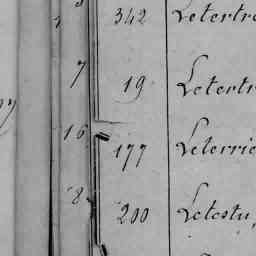 342 Letertre
7 19 Letertr
16 177 Leterrie
8 200 Letestu